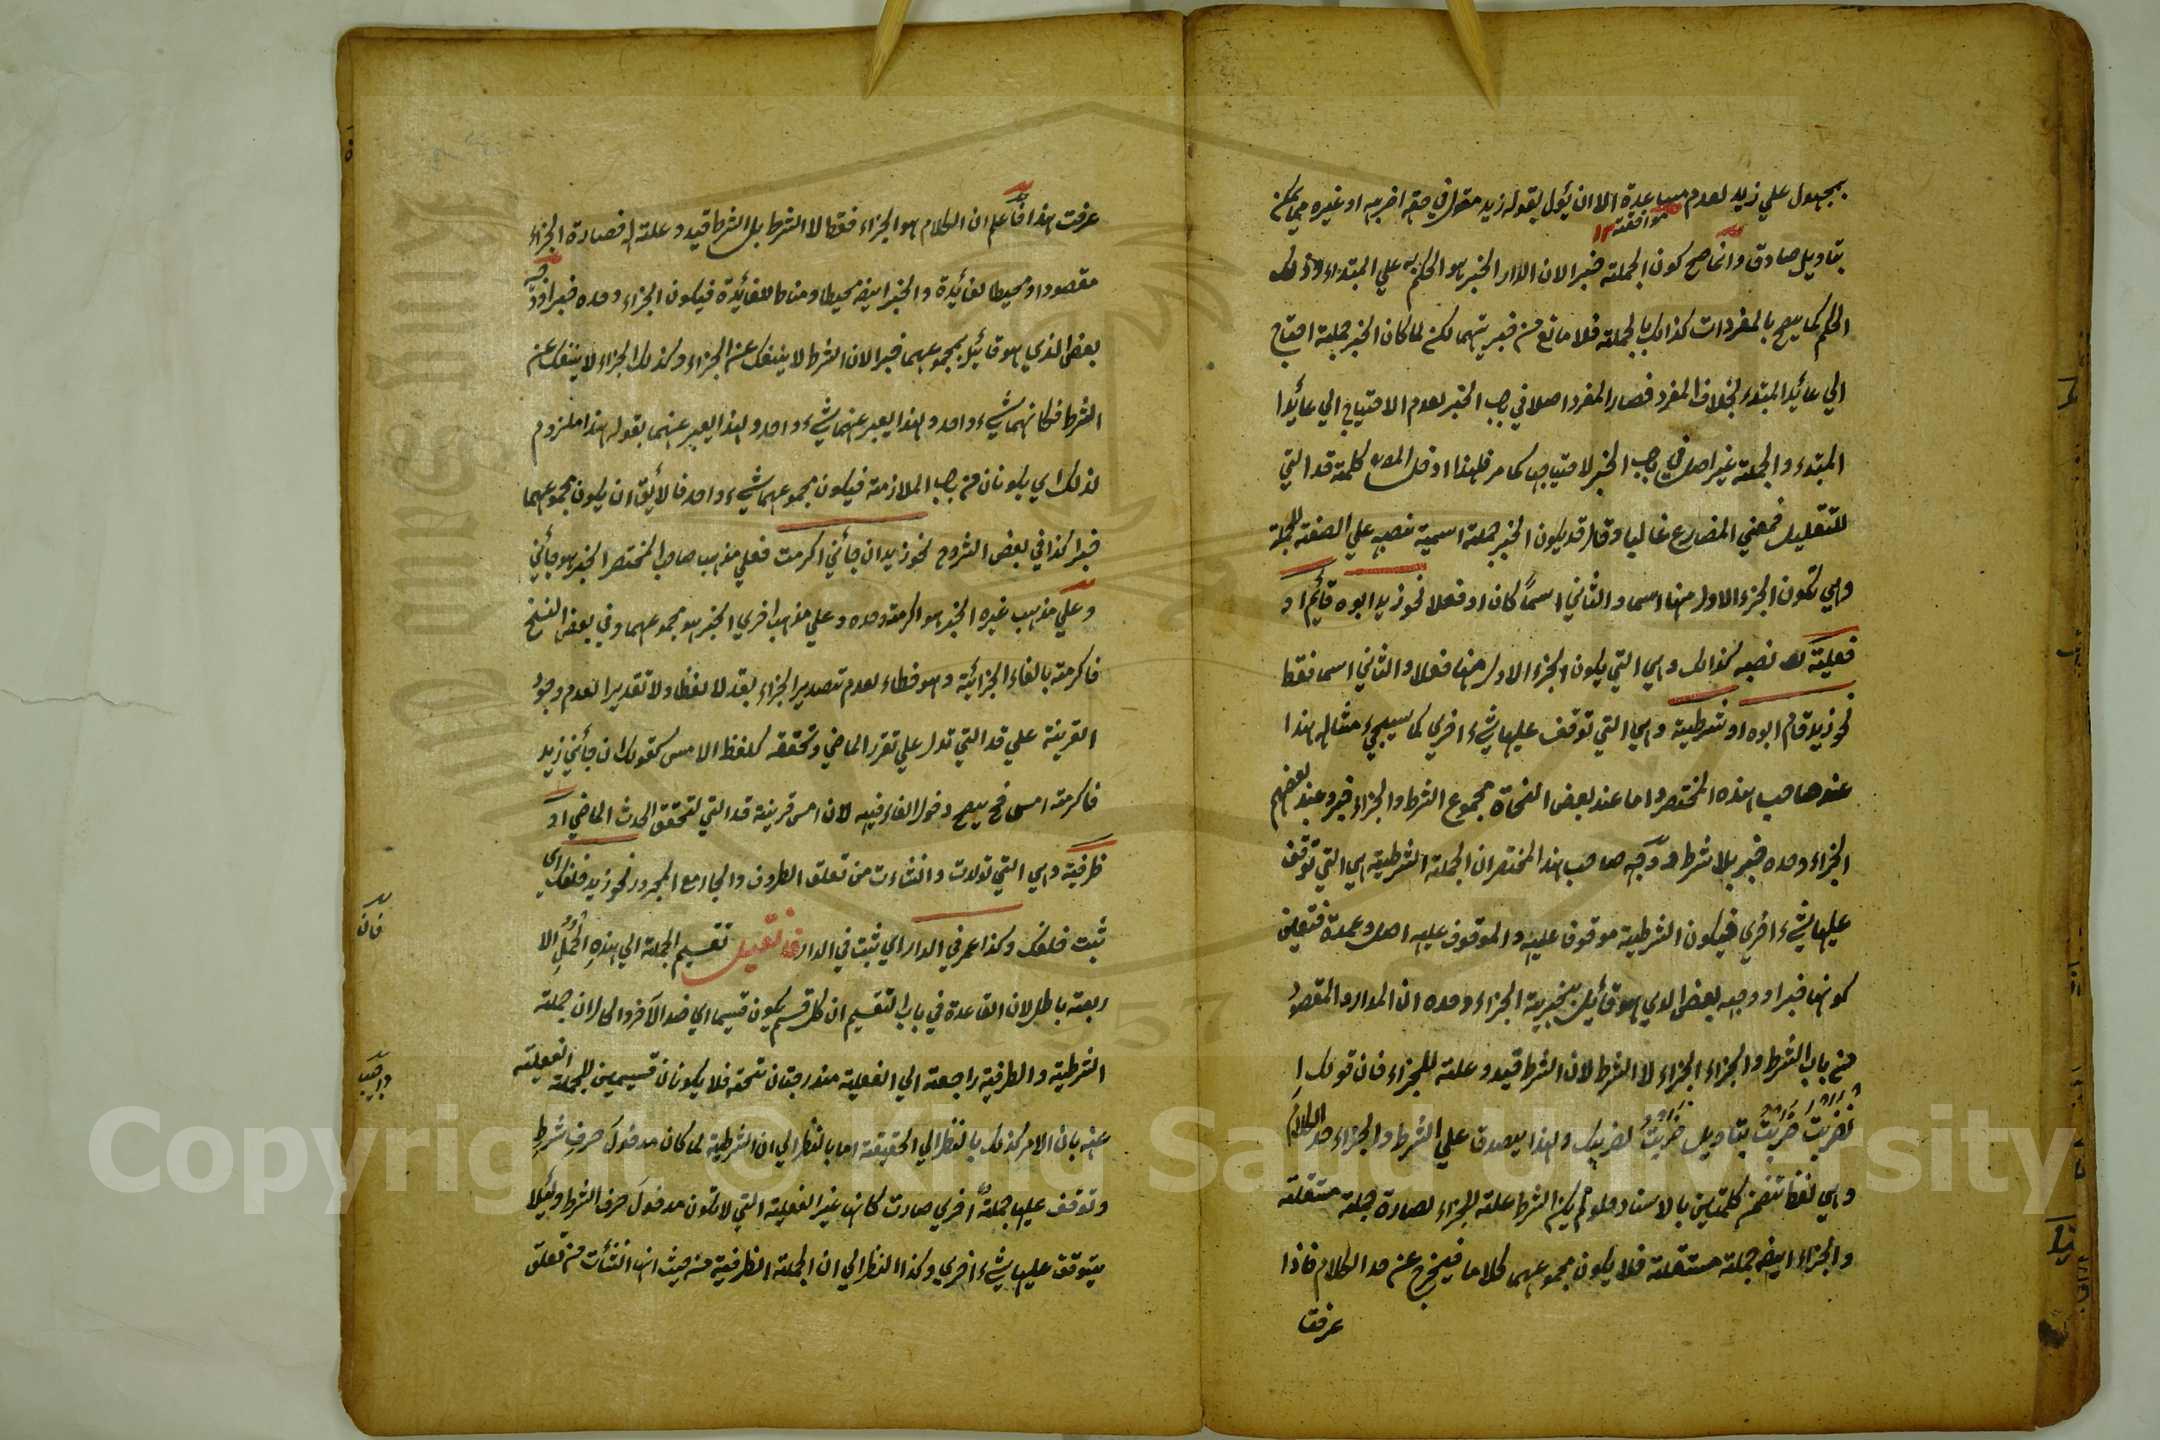 بمجهول علي زيد لعدم مساعدة الا ان يؤل بقوله زيد مقول في حقه اضربه او غيره مما يمكن
موافقته ١٢
بتاويل صادق وانما صح كون الجملة خبرا لان الدار الخبر هو الحكم به علي المبتداء وذلك
الحكم كما يصح بالمفردات كذلك بالجملة فلا مانع من خبريتهما لكن لما كان الخبر جملة احتاج
الي عائد المبتدء بخلاف المفرد فصار المفرد اصلا في باب الخبر لعدم الاحتياج الي عائد
المبتدء والجملة غير اصل في باب الخبر لاحتياجها كما مر فلهذا ادخل المص كلمة قد التي
للتقليل فمعني المضارع غالبا وقال قد يكون الخبر جملة اسمية نصبه علي الصفة للجملة
وهي تكون الجزء الاول منها اسما والثاني اسمًا كان او فعلا نحو زيد ابوه قائم او
فعلية نصبه كذالك وهي التي يكون الجزء الاول منها فعلا والثاني اسما فقط
نحو زيد قام ابوه او شرطية وهي التي توقف عليها شيء اخري كما سيجيء مثاله هذا
عند صاحب هذه المختصر واما عند بعض النحاة مجموع الشرط والجزاء خبر وعند بعضهم
الجزاء وحده خبر بلا شرط ووجه صاحب هذا المختصر ان الجملة الشرطية هي التي توقف
عليها شيء اخري فيكون الشرطية موقوفا عليه والموقوف عليه اصل وعمدة فتعين
كونها خبرا ووجه بعض الذي هو قائل بخبرية الجزاء وحده ان المراد والمقصود
من باب الشرط والجزاء الجزاء لا الشرط لان الشرط قيد وعلة للجزاء فان قولك ان
ضربت ضربت بتاويل ضربت لضربك ولهذا يصدق علي الشرط والجزاء حد الكلام
وهي لفظ تضمن كلمتين بالاسناد فلو لم يكن الشرط علة للجزاء لصارة جملة مستقلة
والجزاء ايضا جملة مستقلة فلا يكون مجموعهما كلاما فيخرج عن حد الكلام فاذا
عرفت
عرفت هذا فاعلم ان الكلام هو الجزاء فقط لا الشرط بل الشرط قيد وعلة له فصارة الجزاء
مقصودا ومحيطا لفائدة والخبر ايضا محيطا ومناطا للفائدة فيكون الجزاء وحده خبرا ووجه
بعض الذي هو قائل بمجموعهما خبرا لان الشرط لا ينفك عن الجزاء وكذلك الجزاء لا ينفك عن
الشرط فكانهما شيء واحد ولهذا يعبر عنهما شيء واحد ولهذا يعبر عنهما بقوله هذا ملزوم
لذلك اي يكونان من باب الملازمة فيكون مجموعهما شيء واحد فالأيق ان يكون مجموعهما
خبرا كذا في بعض الشروح نحو زيد ان جائني اكرمت فعلي مذهب صاحب المختصر الخبر هو جائني
وعلي مذهب غيره الخبر هو اكرمته وحده وعلي مذهب اخري الخبر هو مجموعهما وفي بعض النسخ
فاكرمته بالفاء الجزائية وهو خطاء لعدم تصدير الجزاء بقد لا لفظا ولا تقديرا لعدم وجود
القرينة علي قد التي تدل علي تقرر الماضي وتحققه كلفظ الامس كقولك ان جائني زيد
فاكرمته امس فح يصح دخول الفاء فيه لان امس قرينة قد التي لتحقق الحدث الماضي او
ظرفية وهي التي تولدت وانشاءت من تعلق الظروف والجار مع المجرور نحو زيد خلفك اي
ثبت خلفك وكذا عمر في الدار اي ثبت في الدار فان قيل تقسيم الجملة الي هذه الجمل الا
ربعة باطل لان القاعدة في باب التقسيم ان كل قسم يكون قسيما اي ضد الآخر والحال ان جملة
الشرطية والظرفية راجعة الي الفعلية مندرجتان تحته فلا يكونان قسيمين للجملة الفعلية
عنه بان الامر كذلك بالنظر الي الحقيقة اما بالنظر الي ان الشرطية لما كان مدخول حرف شرط
وتوقف عليها جملة اخري صارت كانها غير الفعلية التي لا تكون مدخول حرف الشرط وكيلا
يتوقف عليها شيء اخري وكذا النظر الي ان الجملة الظرفية من حيث انها انشأت من تعلق
فان
واجيب
Copyright © King Saud University
1957